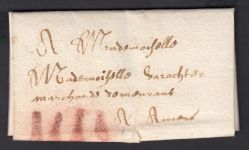 A Mademoiselle
Mademoiselle
marchande demeurant
A Amiens